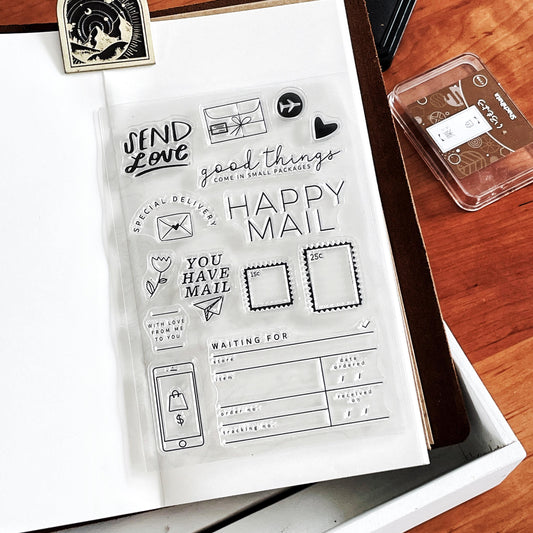 SEND
LOVE
good things
COME IN SMALL PACKAGES
SPECIAL DELIVERY
HAPPY
MAIL
YOU
HAVE
MAIL
15¢
25¢
WITH LOVE
FROM ME
TO YOU
WAITING FOR
store
item
date
ordered
/ /
order no.
received
on
/ /
tracking no.
$